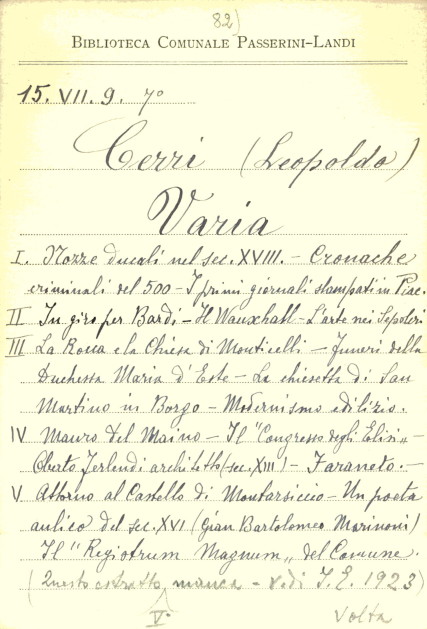 82)
BIBLIOTECA COMUNALE PASSERINI-LANDI
15. VII. 9. 7º
Cerri (Leopoldo)
Varia
I. Nozze ducali nel sec. XVIII. - Cronache
criminali del 500 - I primi giornali stampati in Piac.
II In giro per Bardi - Il Wauxhall - L'arte nei Sepolcri
III La Rocca e la Chiesa di Monticelli - Funeri della
Duchessa Maria d'Este - La chiesetta di San
Martino in Borgo - Modernismo edilizio.
IV Mauro del Maino - Il "Congresso degli Elisi" -
Oberto Jerlendi architetto (sec. XIII) - Faraneto. -
V Attorno al Castello di Montarsiccio - Un poeta
aulico del sec. XVI (Gian Bartolomeo Marinoni)
Il "Registrum Magnum" del Comune.
(Questo estratto manca - vedi I. E. 1923)
V.
Volta